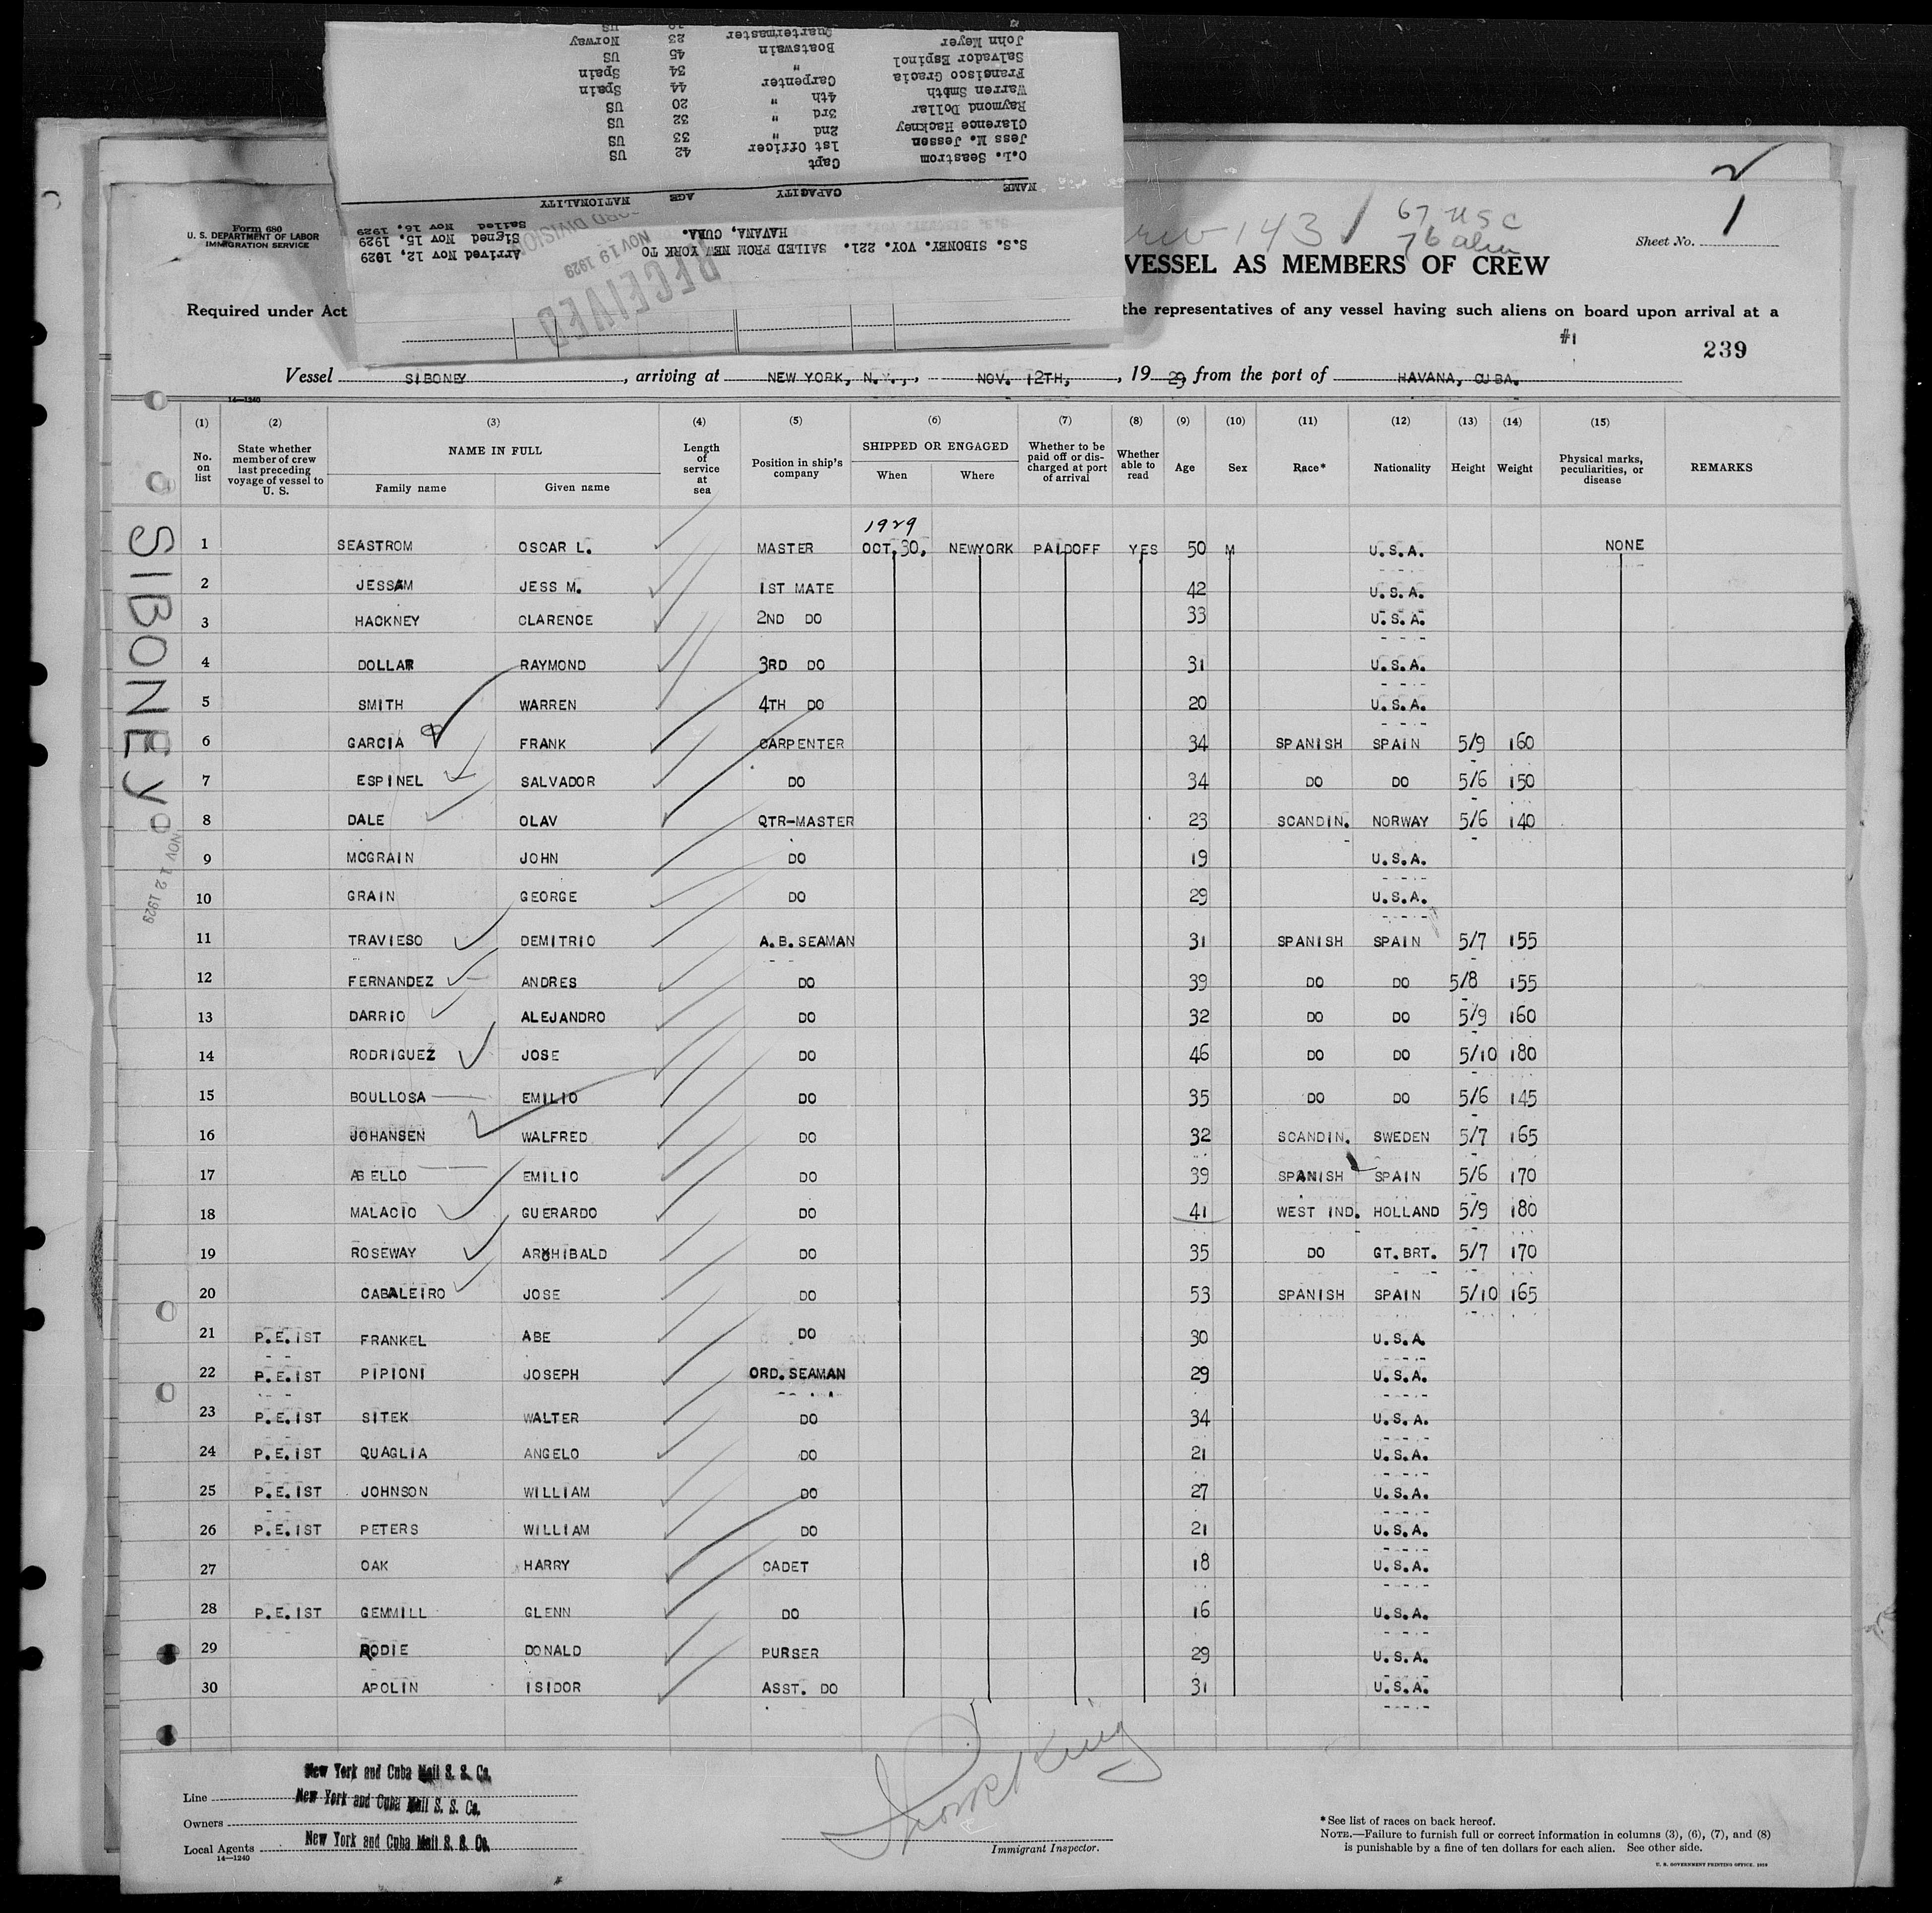 John Meyer Quartermaster 23 Norway
Salvador Espinol Boatswain 45 US
Francisco Gracia " 34 Spain
Warren Smbth Carpenter 44 Spain
Raymond Dollar 4th " 20 US
Clarence Hackney 3rd " 32 US
Jess M. Jessen 2nd " 33 US
O.L. Seastrom 1st Officer 42 US
Capt
NAME CAPACITY AGE NATIONALITY
S.S. SIBONEY. VOY. 221. SAILED FROM NEW YORK TO
HAVANA, CUBA.
Arrived Nov 12, 1929
Signed Nov 15. 1929
Sailed Nov 16. 1929
RECEIVED
NOV 19 1929
Form 680
U. S. DEPARTMENT OF LABOR
IMMIGRATION SERVICE
143
67 USC
76 alien
2
Sheet No. 1
VESSEL AS MEMBERS OF CREW
Required under Act
the representatives of any vessel having such aliens on board upon arrival at a
#1
239
Vessel SIBONEY, arriving at NEW YORK, N.Y., NOV. 12TH, 1929, from the port of HAVANA, CUBA.
14—1240
(1) (2) (3) (4) (5) (6) (7) (8) (9) (10) (11) (12) (13) (14) (15)
No. on list
State whether member of crew last preceding voyage of vessel to U. S.
NAME IN FULL
Family name Given name
Length of service at sea
Position in ship's company
SHIPPED OR ENGAGED
When Where
Whether to be paid off or discharged at port of arrival
Whether able to read
Age Sex Race* Nationality Height Weight
Physical marks, peculiarities, or disease
REMARKS
1929
1 SEASTROM OSCAR L. MASTER OCT. 30, NEWYORK PAIDOFF YES 50 M U.S.A. NONE
2 JESSAM JESS M. 1ST MATE 42 U.S.A.
3 HACKNEY CLARENCE 2ND DO 33 U.S.A.
4 DOLLAR RAYMOND 3RD DO 31 U.S.A.
5 SMITH WARREN 4TH DO 20 U.S.A.
6 GARCIA FRANK CARPENTER 34 SPANISH SPAIN 5/9 160
7 ESPINEL SALVADOR DO 34 DO DO 5/6 150
8 DALE OLAV QTR-MASTER 23 SCANDIN. NORWAY 5/6 140
9 MCGRAIN JOHN DO 19 U.S.A.
10 GRAIN GEORGE DO 29 U.S.A.
11 TRAVIESO DEMITRIO A.B.SEAMAN 31 SPANISH SPAIN 5/7 155
12 FERNANDEZ ANDRES DO 39 DO DO 5/8 155
13 DARRIO ALEJANDRO DO 32 DO DO 5/9 160
14 RODRIGUEZ JOSE DO 46 DO DO 5/10 180
15 BOULLOSA EMILIO DO 35 DO DO 5/6 145
16 JOHANSEN WALFRED DO 32 SCANDIN. SWEDEN 5/7 165
17 ABELLO EMILIO DO 39 SPANISH SPAIN 5/6 170
18 MALACIO GUERARDO DO 41 WEST IND. HOLLAND 5/9 180
19 ROSEWAY ARCHIBALD DO 35 DO GT.BRT. 5/7 170
20 CABALEIRO JOSE DO 53 SPANISH SPAIN 5/10 165
21 P.E.IST FRANKEL ABE DO 30 U.S.A.
22 P.E.IST PIPIONI JOSEPH ORD.SEAMAN 29 U.S.A.
23 P.E.IST SITEK WALTER DO 34 U.S.A.
24 P.E.IST QUAGLIA ANGELO DO 21 U.S.A.
25 P.E.IST JOHNSON WILLIAM DO 27 U.S.A.
26 P.E.IST PETERS WILLIAM DO 21 U.S.A.
27 OAK HARRY CADET 18 U.S.A.
28 P.E.IST GEMMILL GLENN DO 16 U.S.A.
29 RODIE DONALD PURSER 29 U.S.A.
30 APOLIN ISIDOR ASST. DO 31 U.S.A.
SIBONEY
NOV 12 1929
New York and Cuba Mail S. S. Co.
Line
New York and Cuba Mail S. S. Co.
Owners
Local Agents New York and Cuba Mail S. S. Co.
14—1240
Immigrant Inspector.
*See list of races on back hereof.
NOTE.—Failure to furnish full or correct information in columns (3), (6), (7), and (8)
is punishable by a fine of ten dollars for each alien. See other side.
U. S. GOVERNMENT PRINTING OFFICE. 1929